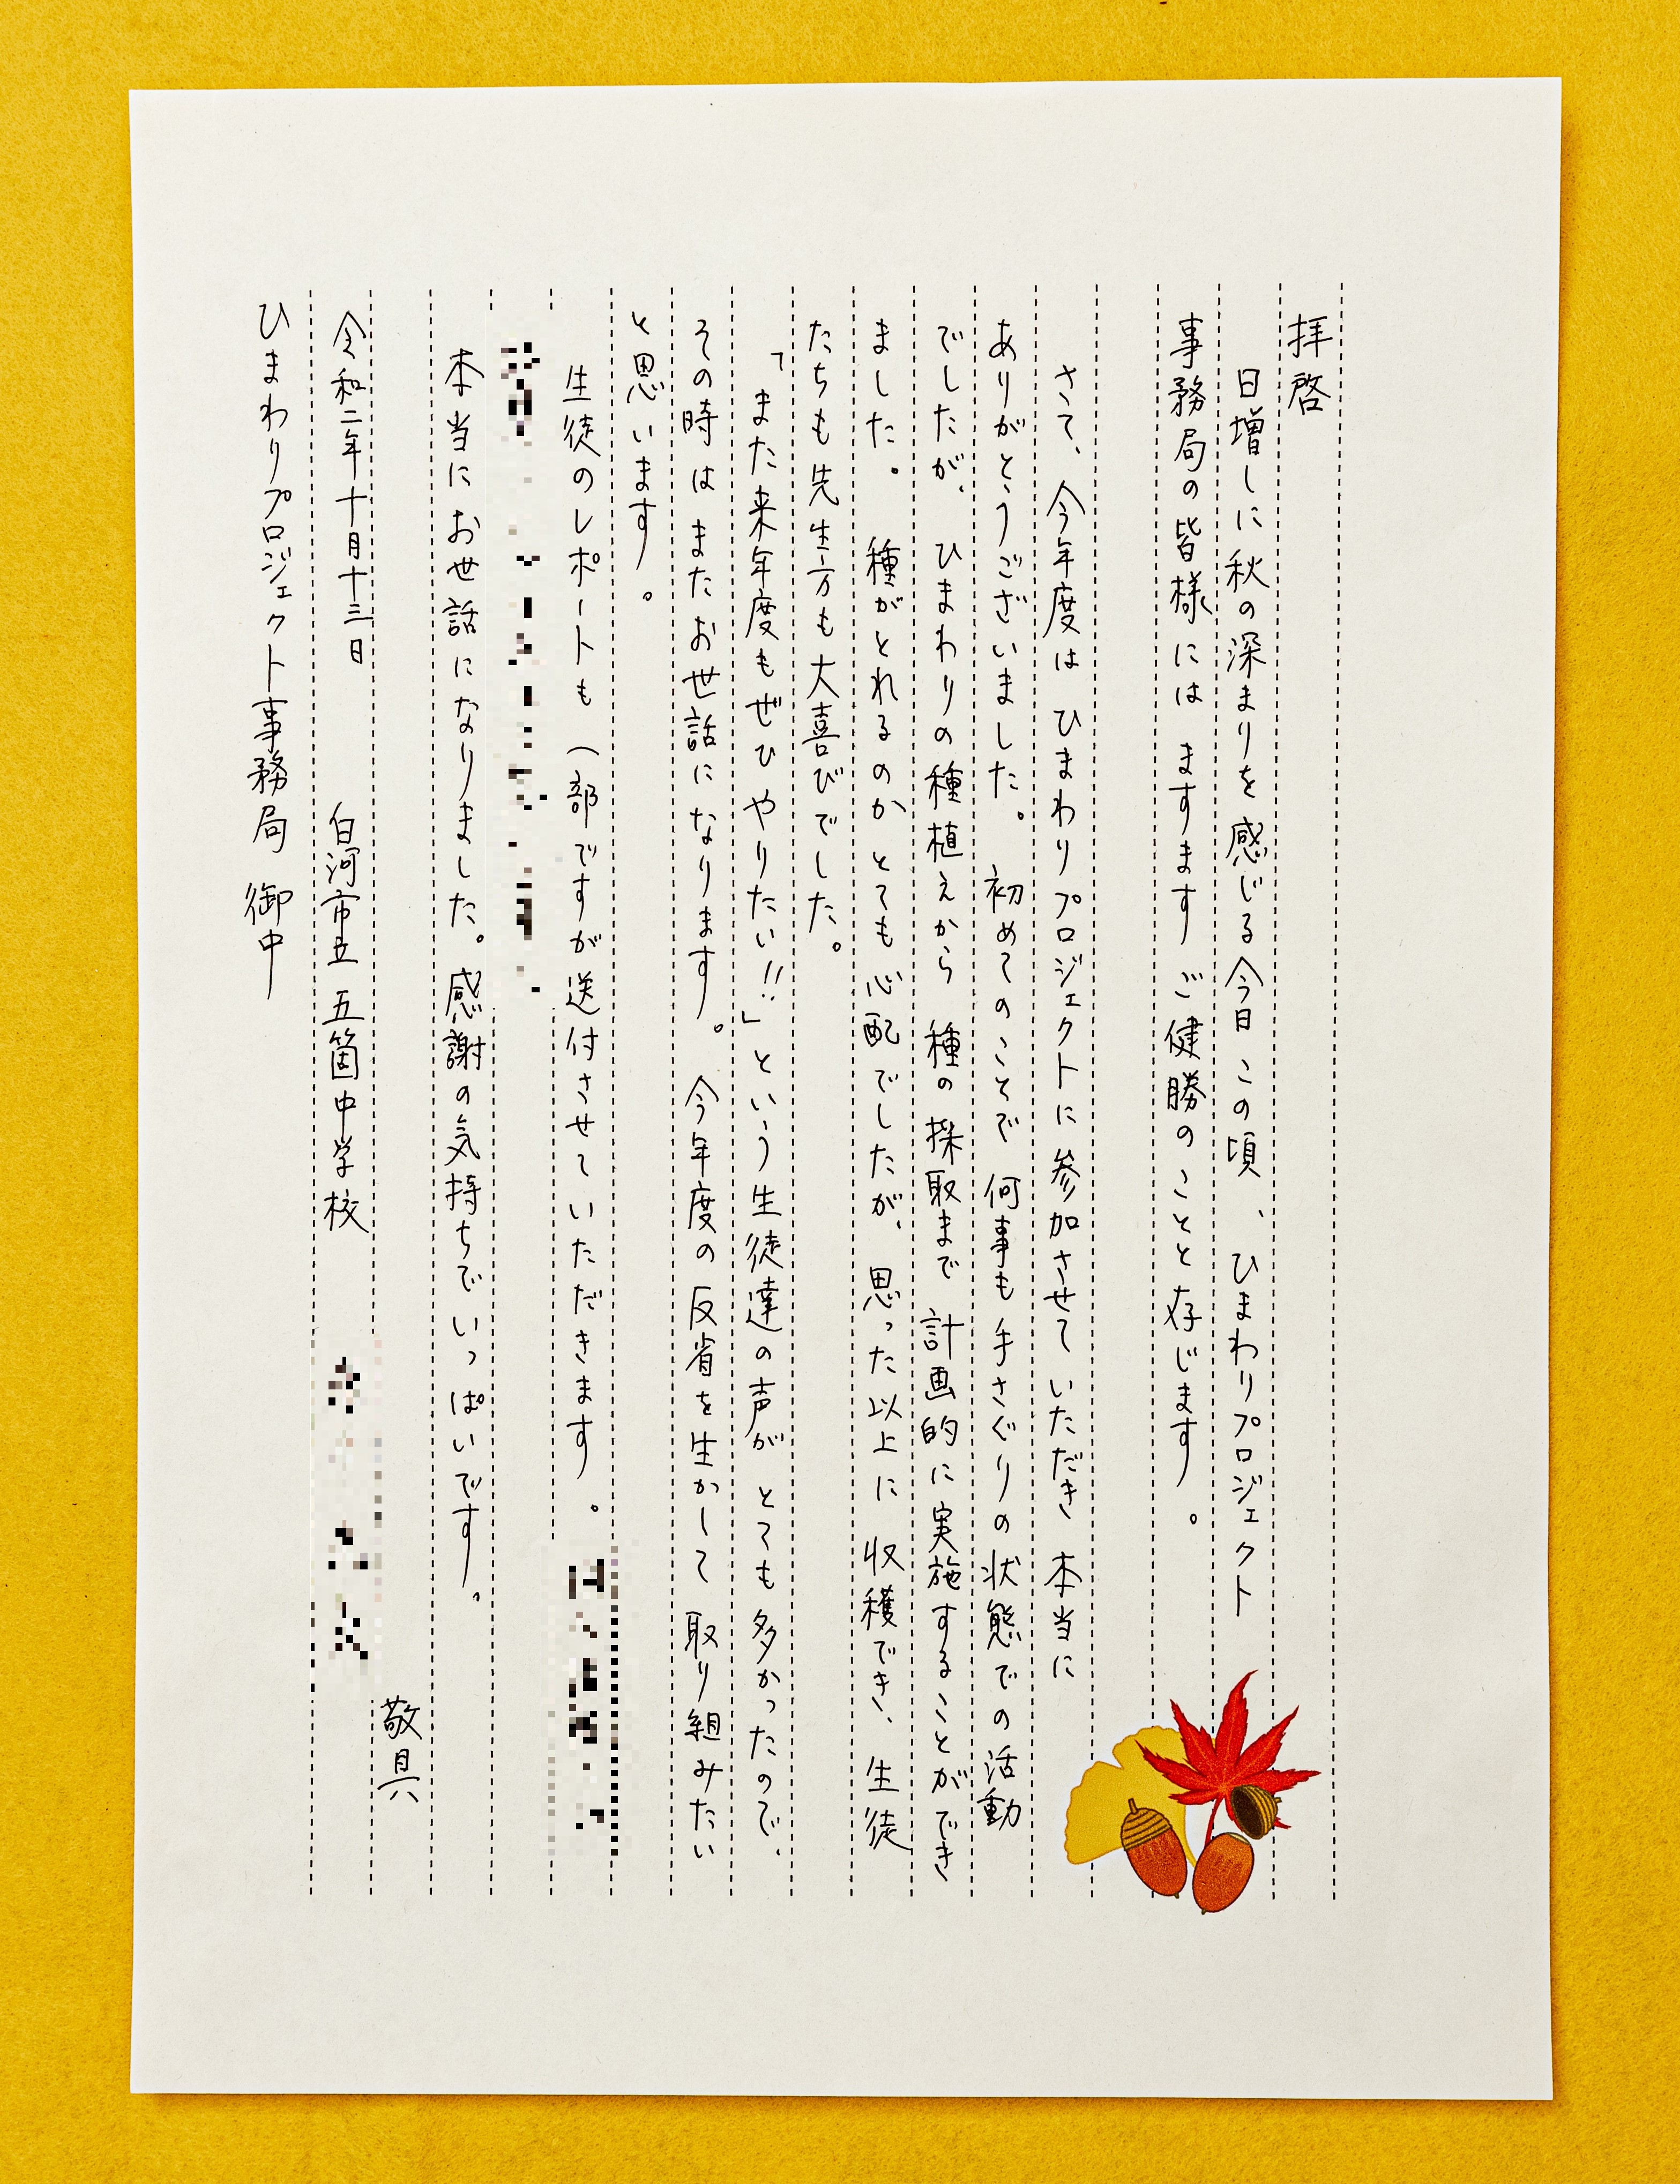 拝啓
日増しに秋の深まりを感じる今日この頃、ひまわりプロジェクト
事務局の皆様には ますます ご健勝のことと存じます。
さて、今年度は ひまわりプロジェクトに参加させて いただき 本当に
ありがとうございました。 初めてのことで 何事も手さぐりの状態での活動
でしたが、ひまわりの種植えから 種の採取まで 計画的に実施することができ
ました。 種がとれるのか とても心配でしたが、思った以上に 収穫でき、生徒
たちも先生方も大喜びでした。
「また来年度もぜひやりたい!!」という生徒達の声が とても多かったので、
その時は またお世話になります。 今年度の反省を生かして 取り組みたい
と思います。
生徒のレポートも(一部ですが送付させていただきます。
本当にお世話になりました。感謝の気持ちでいっぱいです。
敬具
令和二年十月十三日 白河市立 五箇中学校
ひまわりプロジェクト事務局 御中